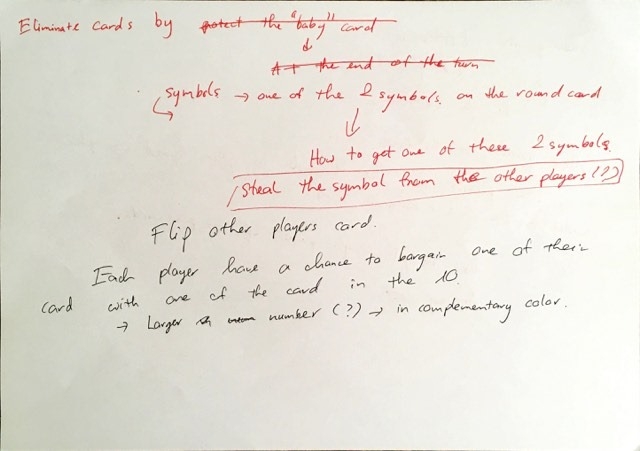 Eliminate cards by protect the "baby" card
At the end of the turn
symbols → one of the 2 symbols on the round card
How to get one of these 2 symbols.
Steal the symbol from the other players (?)
Flip other players card.
Each player have a chance to bargain one of their
card with one of the card in the 10.
→ Larger number (?) → in complementary color.